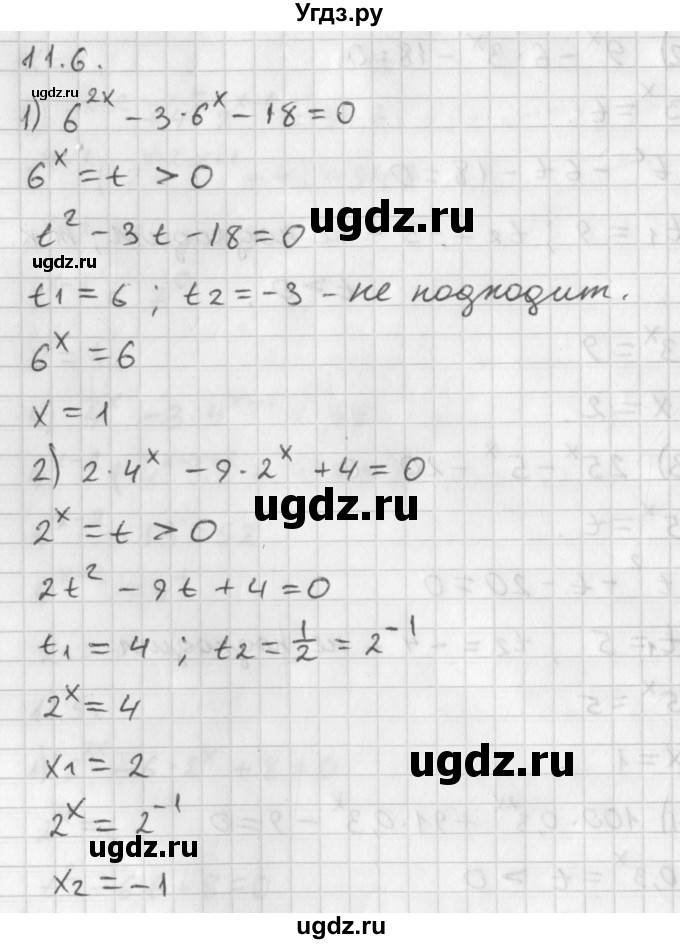 Угдз.ру
11.6.
ugdz.ru
1) 6^{2x} - 3·6^x - 18 = 0
6^x = t > 0
ugdz.ru
t^2 - 3t - 18 = 0
ugdz.ru
t1 = 6 ; t2 = -3 - не подходит.
6^x = 6
x = 1
2) 2·4^x - 9·2^x + 4 = 0
ugdz.ru
2^x = t > 0
2t^2 - 9t + 4 = 0
t1 = 4 ; t2 = 1/2 = 2^{-1}
2^x = 4
ugdz.ru
x1 = 2
2^x = 2^{-1}
ugdz.ru
x2 = -1
ugdz.ru